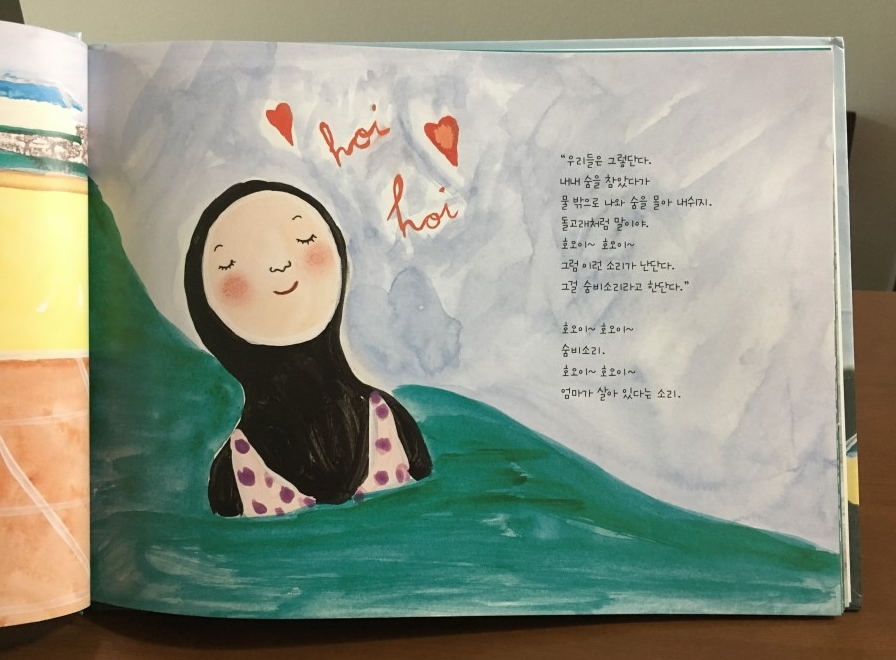 hoi
hoi
“우리들은 그렇단다.
내내 숨을 참았다가
물 밖으로 나와 숨을 몰아 내쉬지.
돌고래처럼 말이야.
호오이~ 호오이~
그럼 이런 소리가 난단다.
그걸 숨비소리라고 한단다.”
호오이~ 호오이~
숨비소리.
호오이~ 호오이~
엄마가 살아 있다는 소리.